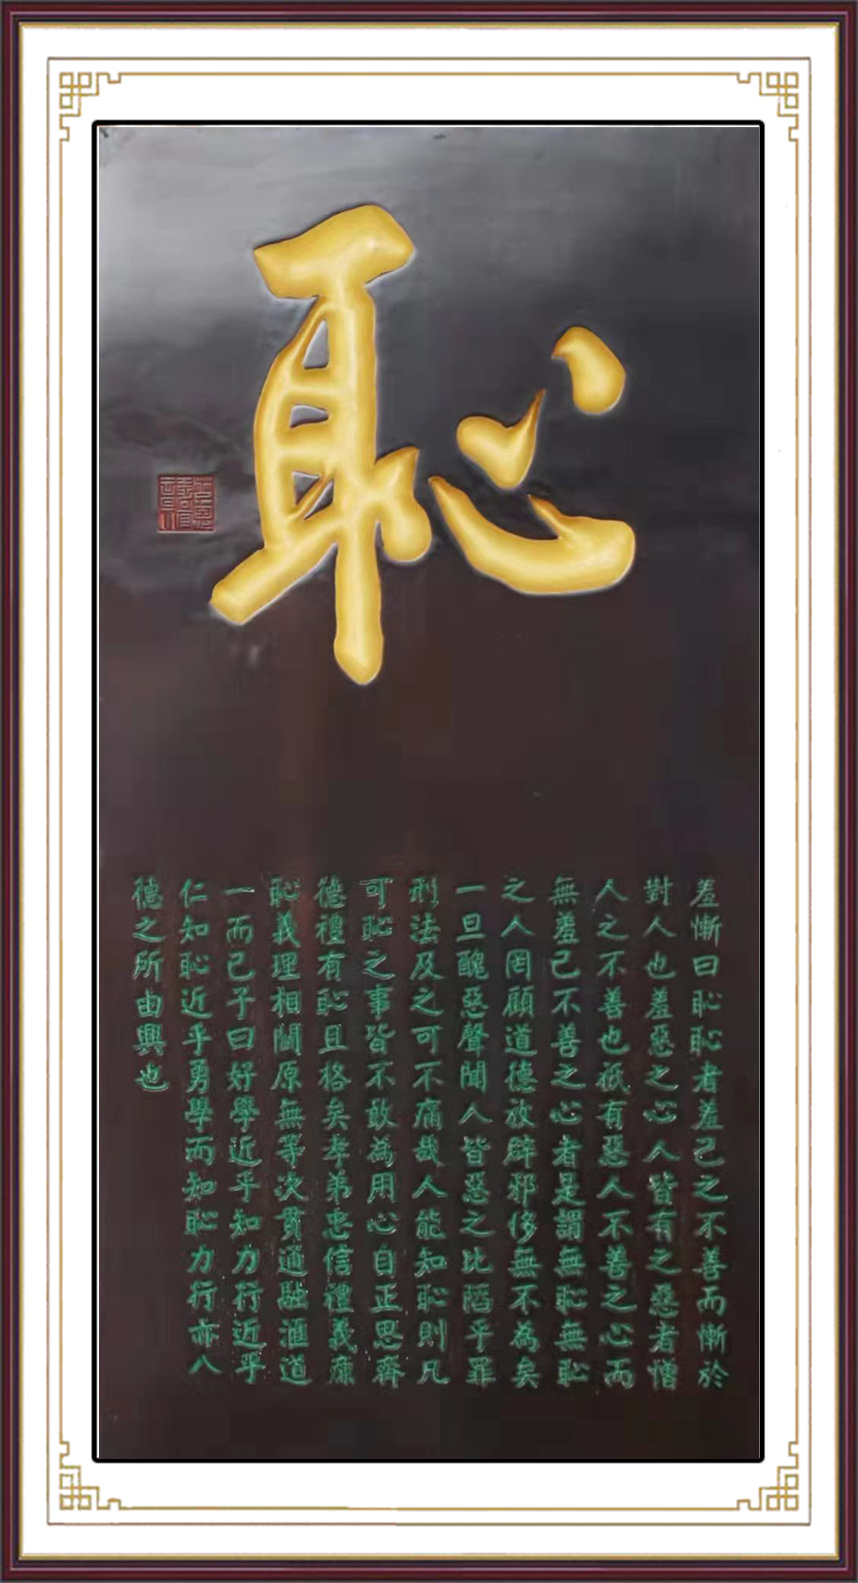 恥
羞慚曰恥恥者羞己之不善而慚於
對人也羞惡之心人皆有之惡者憎
人之不善也祇有惡人不善之心而
無羞己不善之心者是謂無恥無恥
之人罔顧道德放辟邪侈無不為矣
一旦醜惡聲聞人皆惡之比蹈乎罪
刑法及之可不痛哉人能知恥則凡
可恥之事皆不敢為用心自正思齊
德禮有恥且格矣孝弟忠信禮義廉
恥義理相關原無等次貫通融滙道
一而已子曰好學近乎知力行近乎
仁知恥近乎勇學而知恥力行亦八
德之所由興也